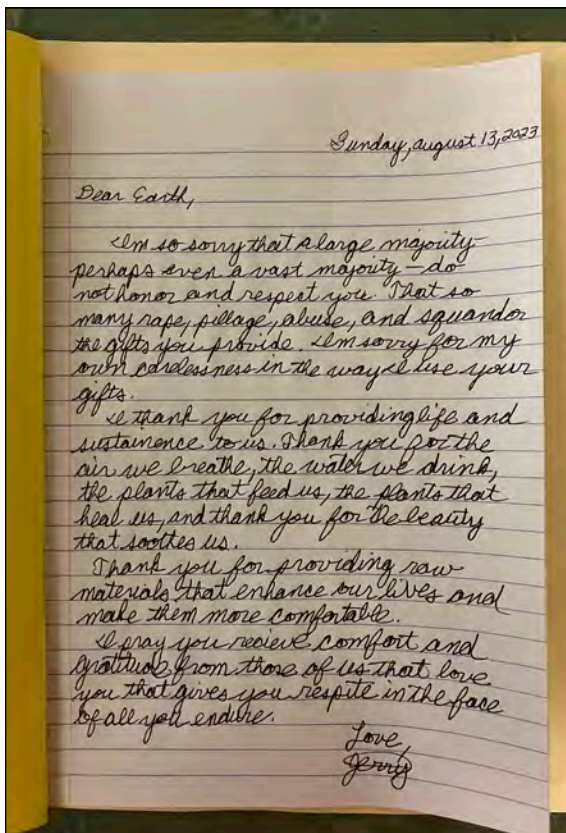 Sunday, august 13, 2023
Dear Earth,
Im so sorry that a large majority-
perhaps even a vast majority - do
not honor and respect you. That so
many rape, pillage, abuse, and squandor
the gifts you provide. Im sorry for my
own carelessness in the way I use your
gifts.
I thank you for providing life and
sustainence to us. Thank you for the
air we breathe, the water we drink,
the plants that feed us, the plants that
heal us, and thank you for the beauty
that soothes us.
Thank you for providing raw
materials that enhance our lives and
make them more comfortable.
I pray you recieve comfort and
gratitude from those of us that love
you that gives you respite in the face
of all you endure.
Love,
Jerry